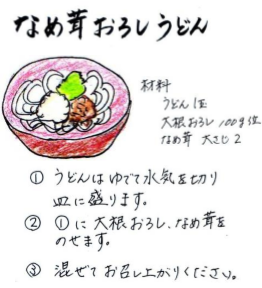 なめ茸おろしうどん
材料
うどん 1玉
大根おろし 100g位
なめ茸 大さじ2
① うどんはゆでて水気を切り
皿に盛ります。
② ①に大根おろし、なめ茸を
のせます。
③ 混ぜてお召し上がりください。